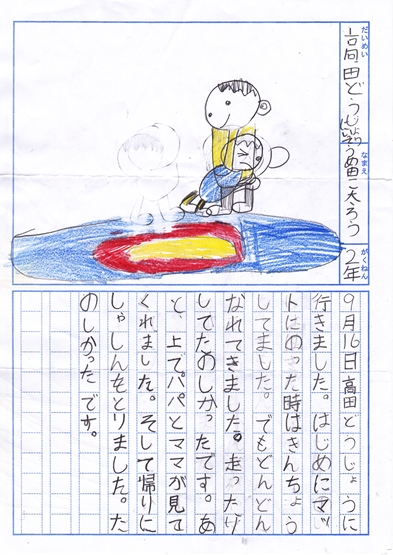 だいめい
高田どうじょう
なまえ
太ろう
がくねん
2年
9月16日高田どうじょうに
行きました。はじめにマッ
トにのった時はきんちょう
してました。でもどんどん
なれてきました。走ったり
してたのしかったです。あ
と、上でパパとママが見て
くれました。そして帰りに
しゃしんをとりました。た
のしかったです。